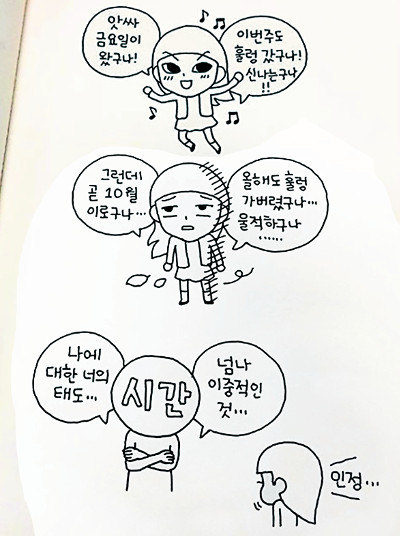 앗싸
금요일이
왔구나!
이번주도
훌렁 갔구나!
신나는구나
!!
그런데
곧 10월
이로구나...
올해도 훌렁
가버렸구나...
울적하구나
......
나에
대한 너의
태도...
시간
넘나
이중적인
것...
인정...